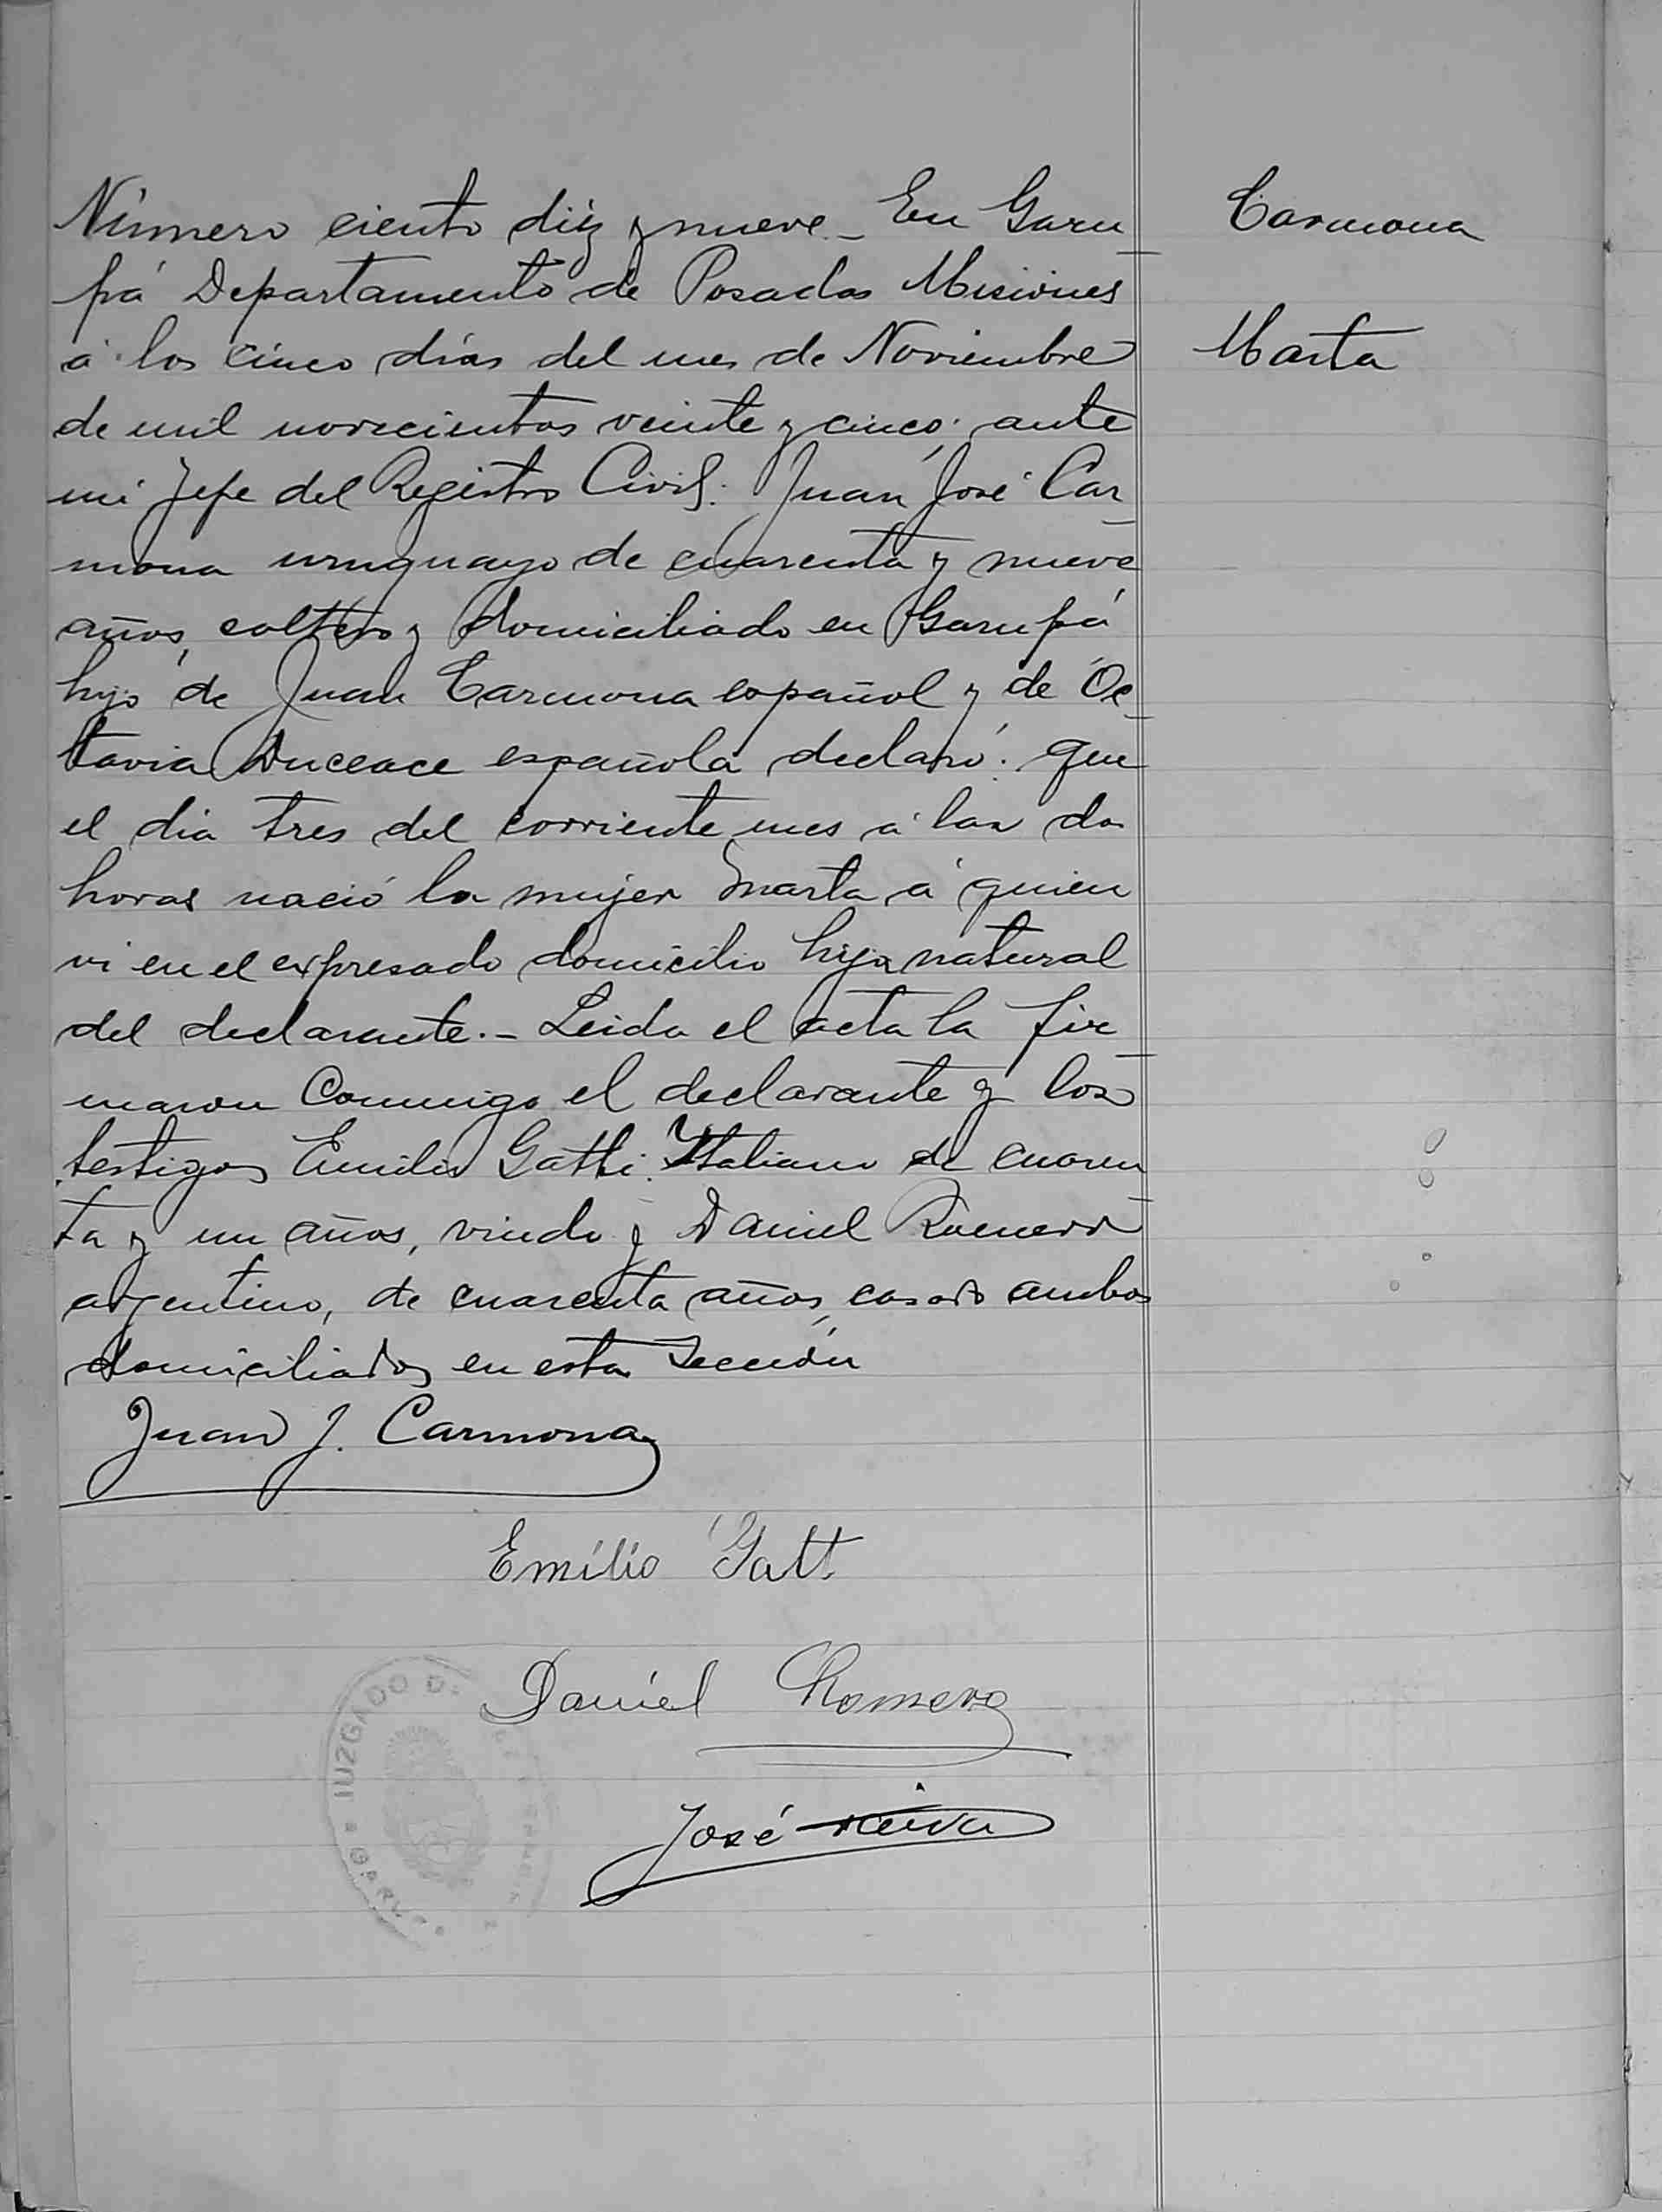 Número ciento diez y nueve - En Garu
pá Departamento de Posadas Misiones
á los cinco días del mes de Noviembre
de mil novecientos veinte y cinco; ante
mi Jefe del Registro Civil: Juan José Car
mona uruguayo de cuarenta y nueve
años, soltero y domiciliado en Garupá
hijo de Juan Carmona español y de Oc
tavia española declaró: que
el día tres del corriente mes á las dos
horas nació la mujer Marta á quien
vi en el expresado domicilio hija natural
del declarante.- Leida el acta la fir
maron conmigo el declarante y los
testigos Emilio Gatti Italiano de cuaren
ta y un años, viudo y Daniel Romero
argentino, de cuarenta años, casado ambos
domiciliados en esta Sección
Juan J. Carmona
Emilio Gatt
Daniel Romero
José
Carmona
Marta
JUZGADO D
GARU